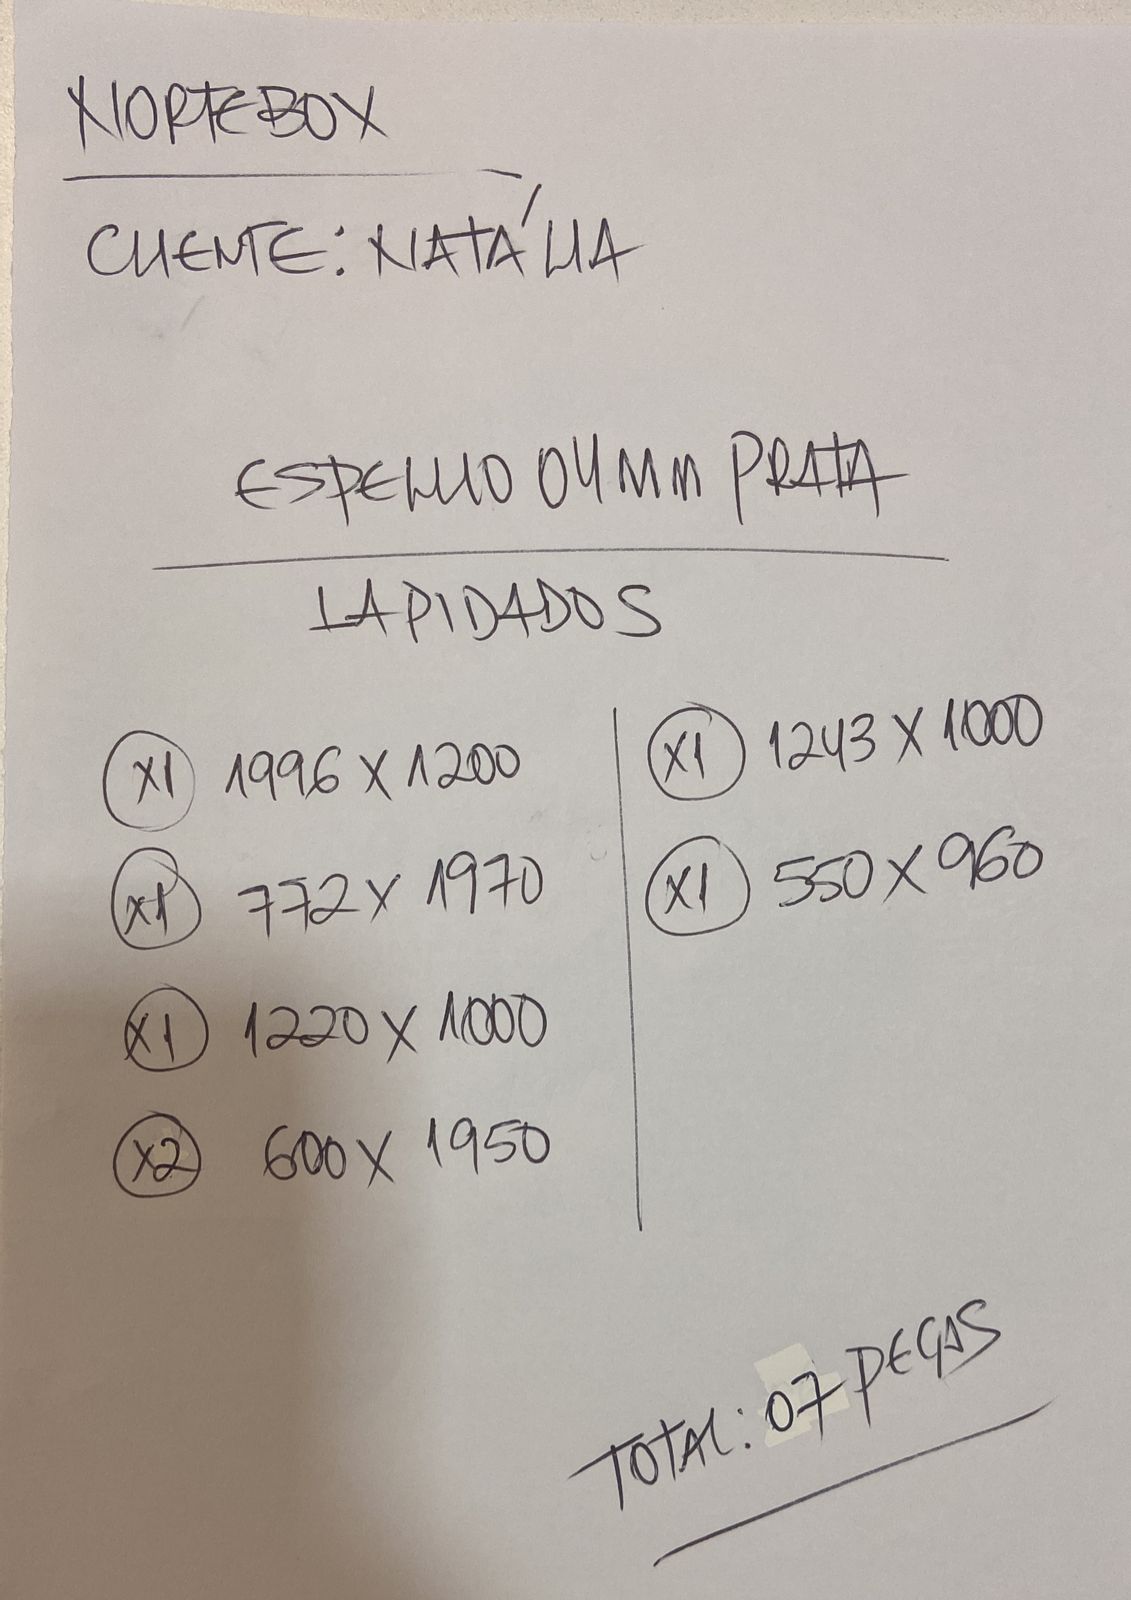 NORTEBOX
CLIENTE: NATÁLIA
ESPELHO 04MM PRATA
LAPIDADOS
X1 1996 X 1200
X1 772 X 1970
X1 1220 X 1000
X2 600 X 1950
X1 1243 X 1000
X1 550 X 960
TOTAL: 07 PEÇAS